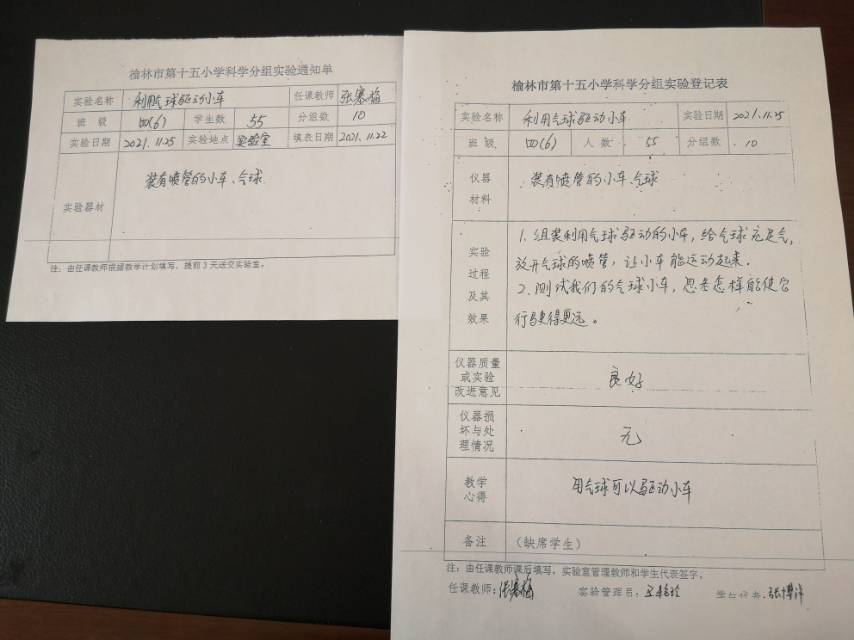 榆林市第十五小学科学分组实验通知单
实验名称 利用气球驱动小车 任课教师 张寒梅
班 级 四(6) 学生数 55 分组数 10
实验日期 2021.11.25 实验地点 实验室 填表日期 2021.11.22
实验器材 装有喷管的小车、气球
注：由任课教师根据教学计划填写，提前3天送交实验室。
榆林市第十五小学科学分组实验登记表
实验名称 利用气球驱动小车 实验日期 2021.11.25
班 级 四(6) 人 数 55 分组数 10
仪器 装有喷管的小车、气球
材料
实验
过程
及其
效果
1、组装利用气球驱动的小车，给气球充足气，
放开气球的喷管，让小车能运动起来.
2、测试我们的气球小车，思考怎样能使它
行驶得更远。
仪器质量
或实验
改进意见
良好
仪器损
坏与处
理情况
无
教学
心得
用气球可以驱动小车
备注 （缺席学生）
注：由任课教师课后填写，实验室管理教师和学生代表签字。
任课教师：张寒梅 实验管理员： 学生代表：张博洋